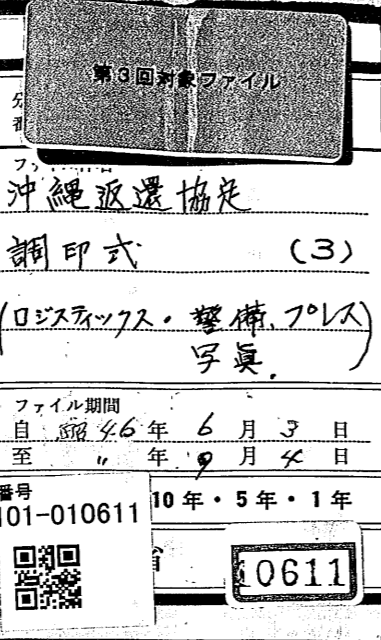 第3回対象ファイル
沖縄返還協定
調印式 (3)
(ロジスティックス・警備、プレス)
写眞.
ファイル期間
自 昭46年 6月 3日
至 〃 年 9月 4日
番号
101-010611
10年・5年・1年
省
0611